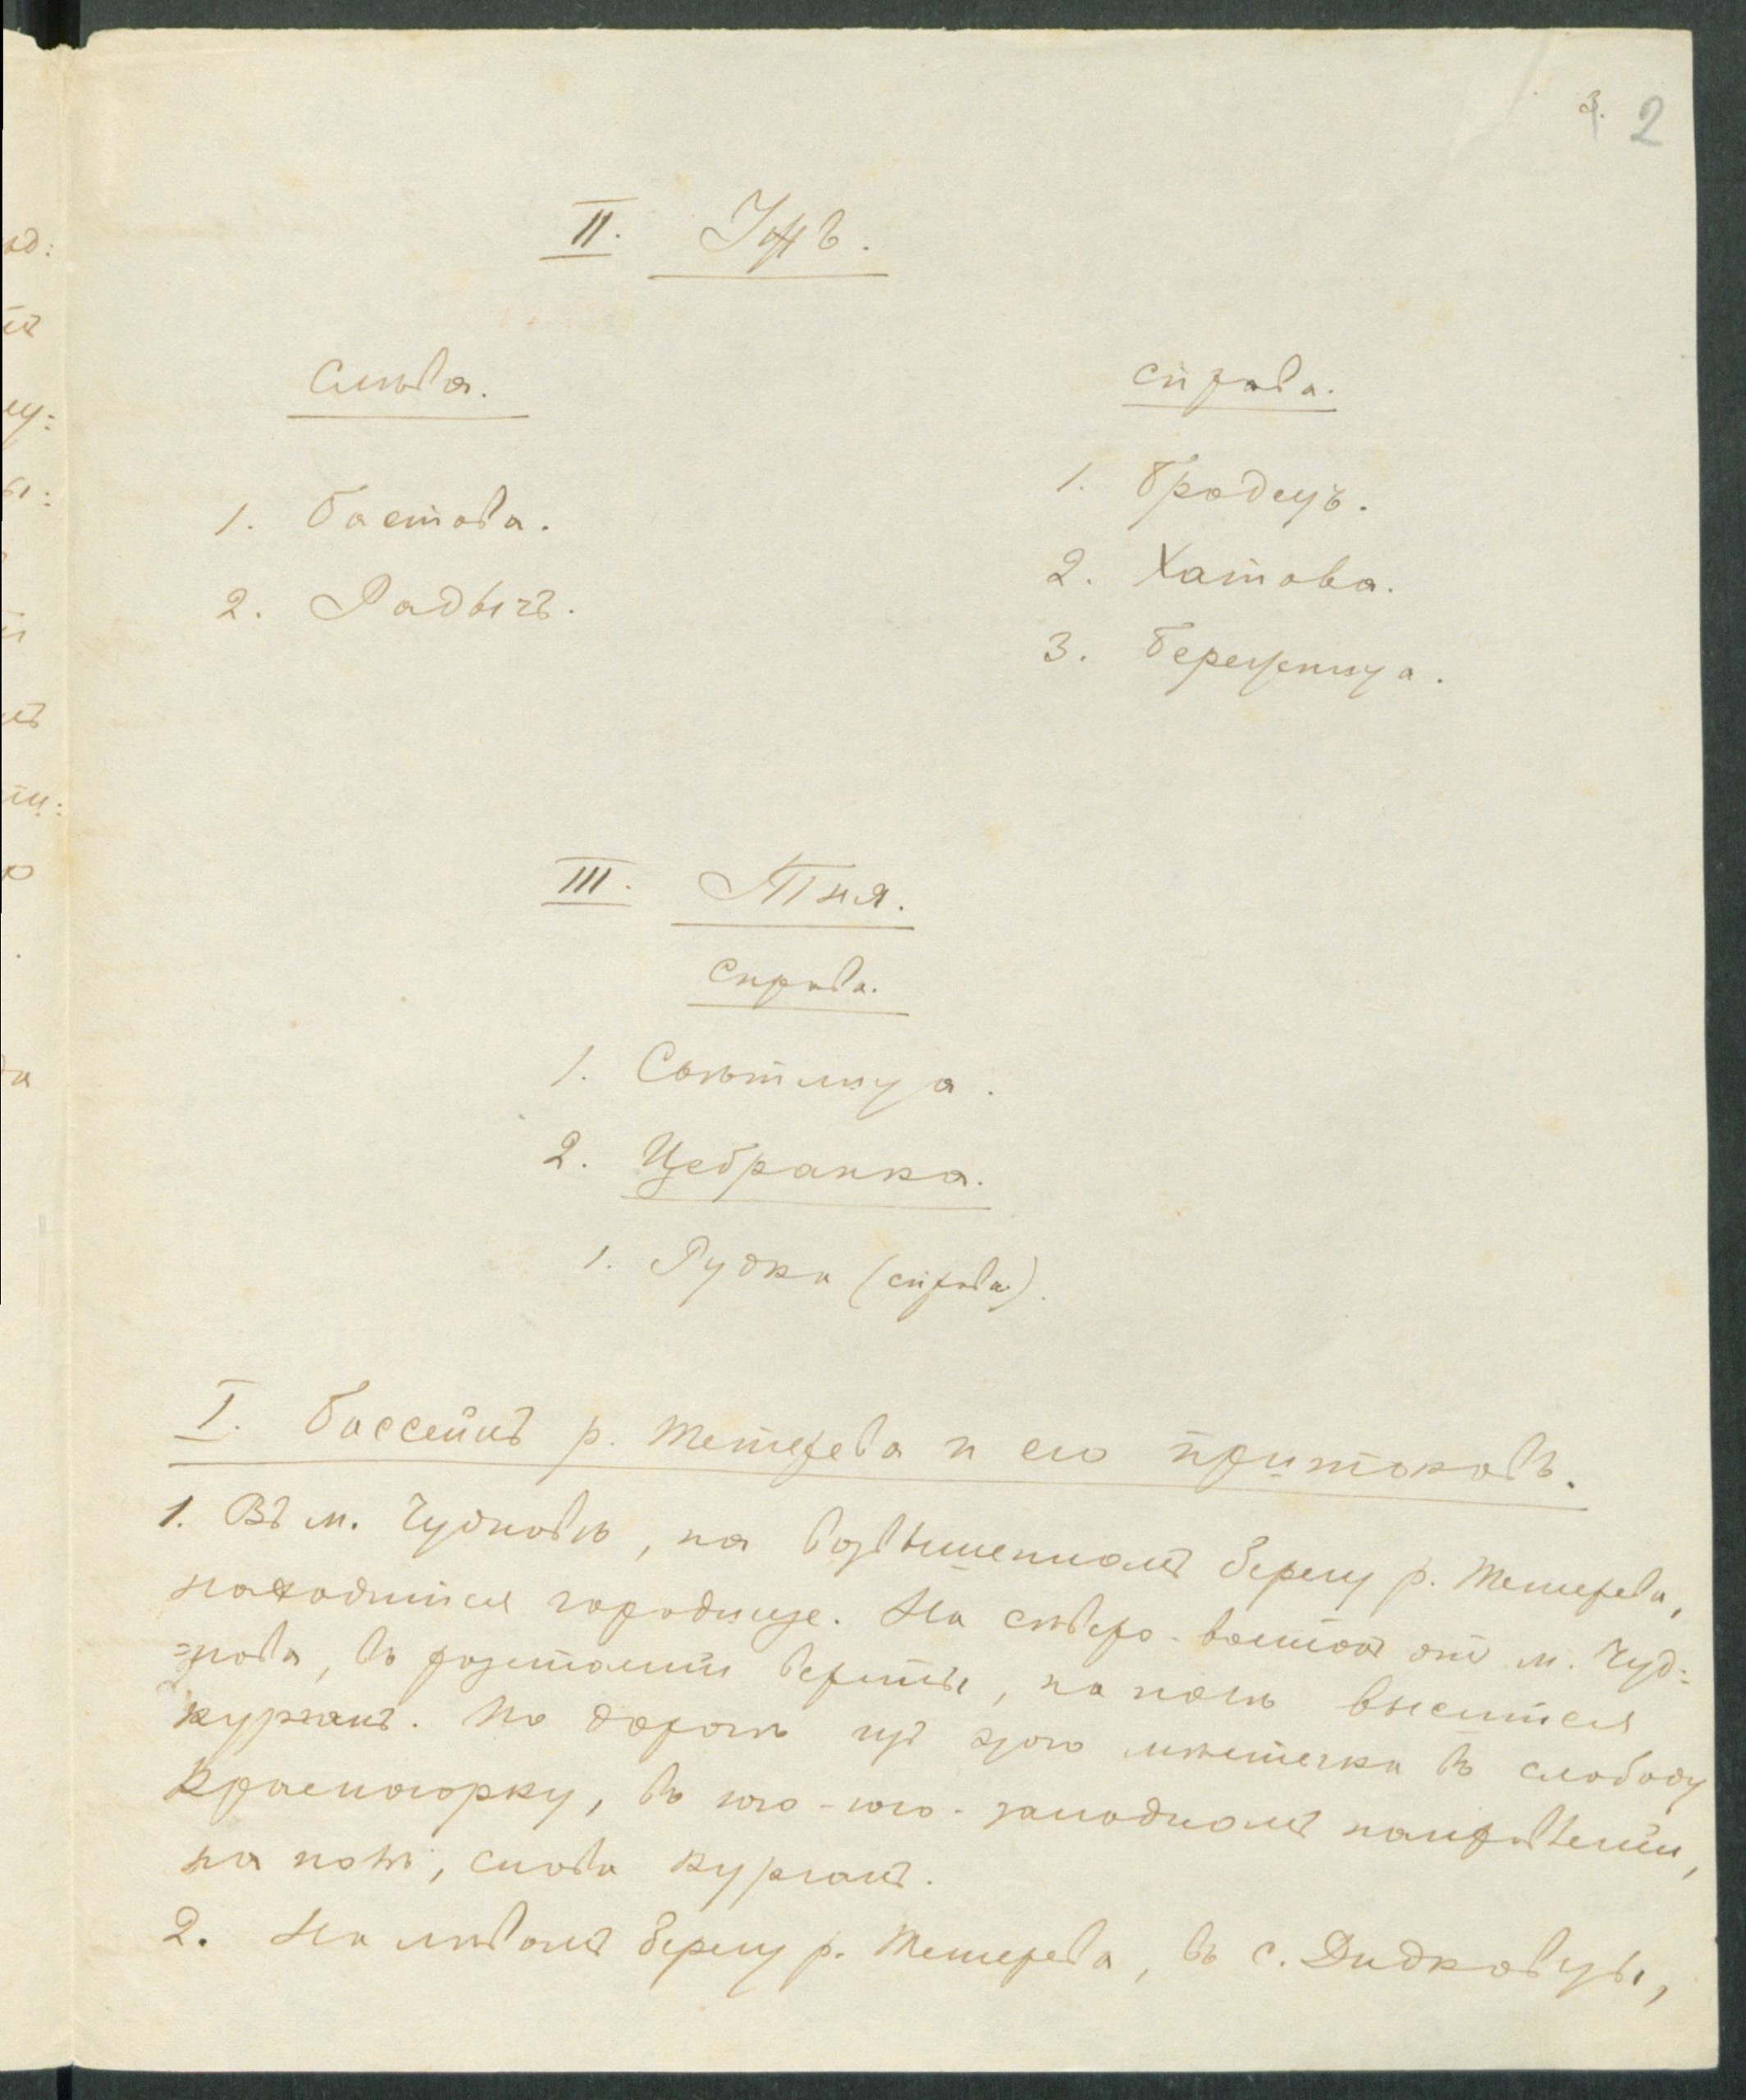 3. 2
II. Ужъ.
Слѣва.
1. Бастова.
2. Радычъ.
справа.
1. Бродецъ.
2. Хатова.
3. Березница.
III. Тня.
Справа.
1. Свѣтлица.
2. Цебранка.
1. Рудка (справа).
I. Бассейнъ р. Тетерева и его притоковъ.
1. Въ м. Чудновѣ, на возвышенномъ берегу р. Тетерева,
находится городище. На сѣверо-востокъ отъ м. Чуд=
=нова, въ разстояніи версты, на полѣ высится
курганъ. По дорогѣ изъ этого мѣстечка въ слободу
Красногорку, въ юго-юго-западномъ направленіи,
на полѣ, снова курганъ.
2. На лѣвомъ берегу р. Тетерева, въ с. Дидковцы,